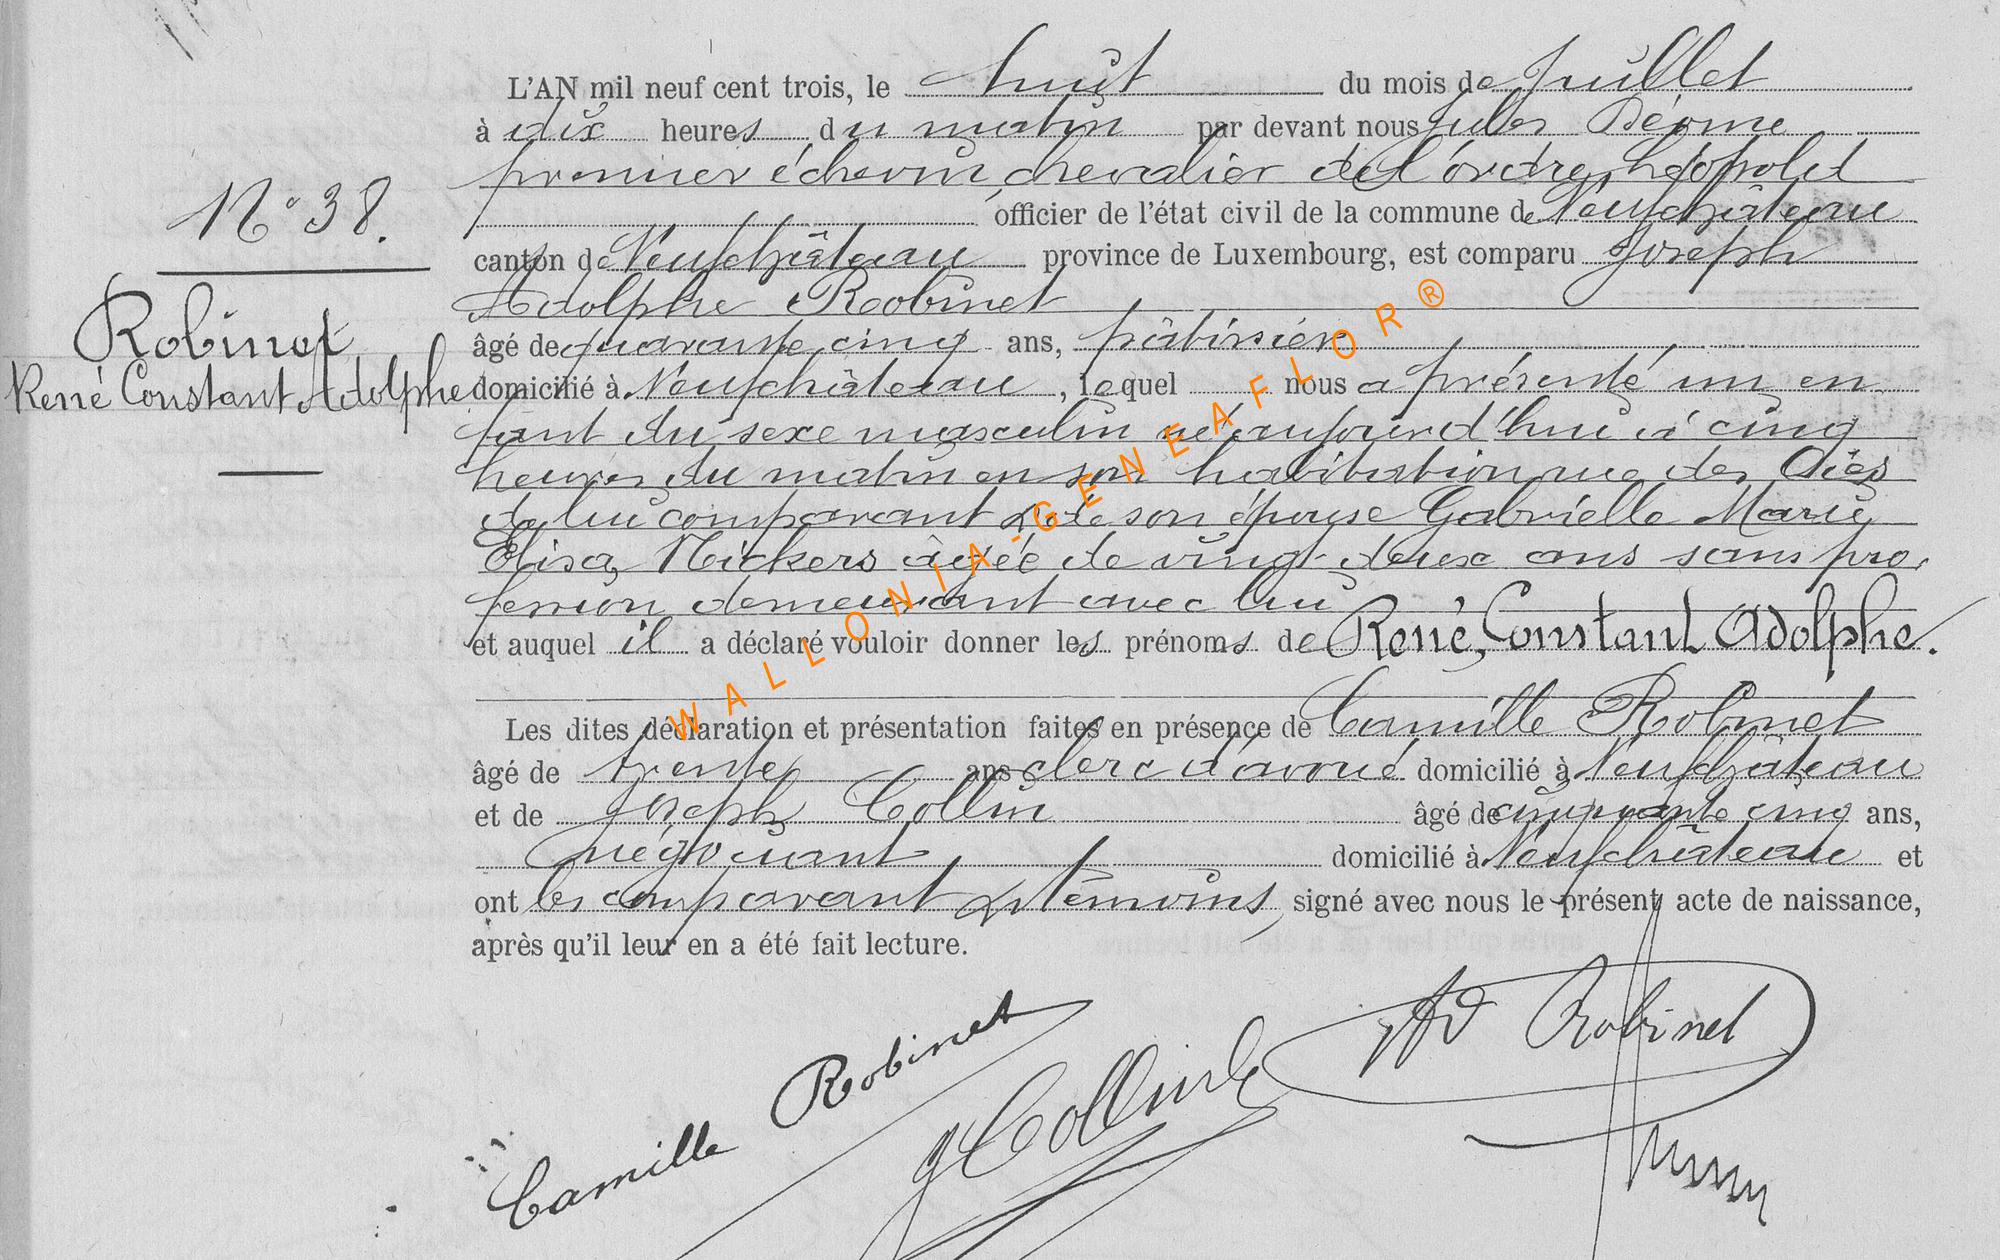 L'AN mil neuf cent trois, le huit du mois de Juillet
à dix heures du matin par devant nous Jules
premier échevin chevalier de l'ordre Léopold
officier de l'état civil de la commune de Neufchâteau
canton de Neufchâteau province de Luxembourg, est comparu Joseph
Adolphe Robinet
âgé de quarante cinq ans, pâtissier
domicilié à Neufchâteau, lequel nous a présenté un en
fant du sexe masculin né aujourd'hui à cinq
heures du matin en son habitation rue des
de lui comparant & de son épouse Gabrielle Marie
Elisa Nickers âgée de vingt-deux ans sans pro,
fession demeurant avec lui
et auquel il a déclaré vouloir donner les prénoms de René, Constant Adolphe.
Les dites déclaration et présentation faites en présence de Camille Robinet
âgé de trente ans clerc d'avoué domicilié à Neufchâteau
et de Joseph Collin âgé de cinquante cinq ans,
négociant domicilié à Neufchâteau et
ont les comparant & témoins, signé avec nous le présent acte de naissance,
après qu'il leur en a été fait lecture.
N° 38.
Robinet
René Constant Adolphe
Camille Robinet
J Collin
Ad Robinet
WALLONIA-GENEAFLOR®